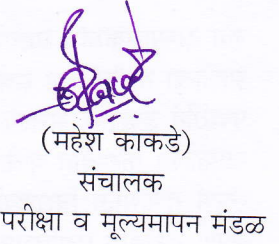 (महेश काकडे)
संचालक
परीक्षा व मूल्यमापन मंडळ